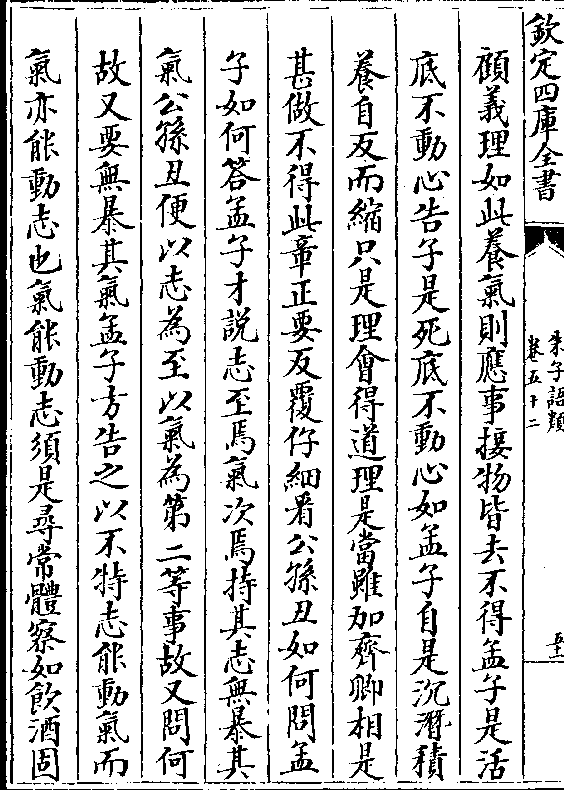 欽定四庫全書
朱子語類
卷五十二
五十一
顧義理如此養氣則應事接物皆去不得孟子是活
底不動心告子是死底不動心如孟子自是沉潛積
養自反而縮只是理會得道理是當雖加齊卿相是
甚做不得此章正要反覆仔細看公孫丑如何問孟
子如何答孟子才說志至焉氣次焉持其志無暴其
氣公孫丑便以志為至以氣為第二等事故又問何
故又要無暴其氣孟子方告之以不特志能動氣而
氣亦能動志也氣能動志須是尋常體察如飲酒固